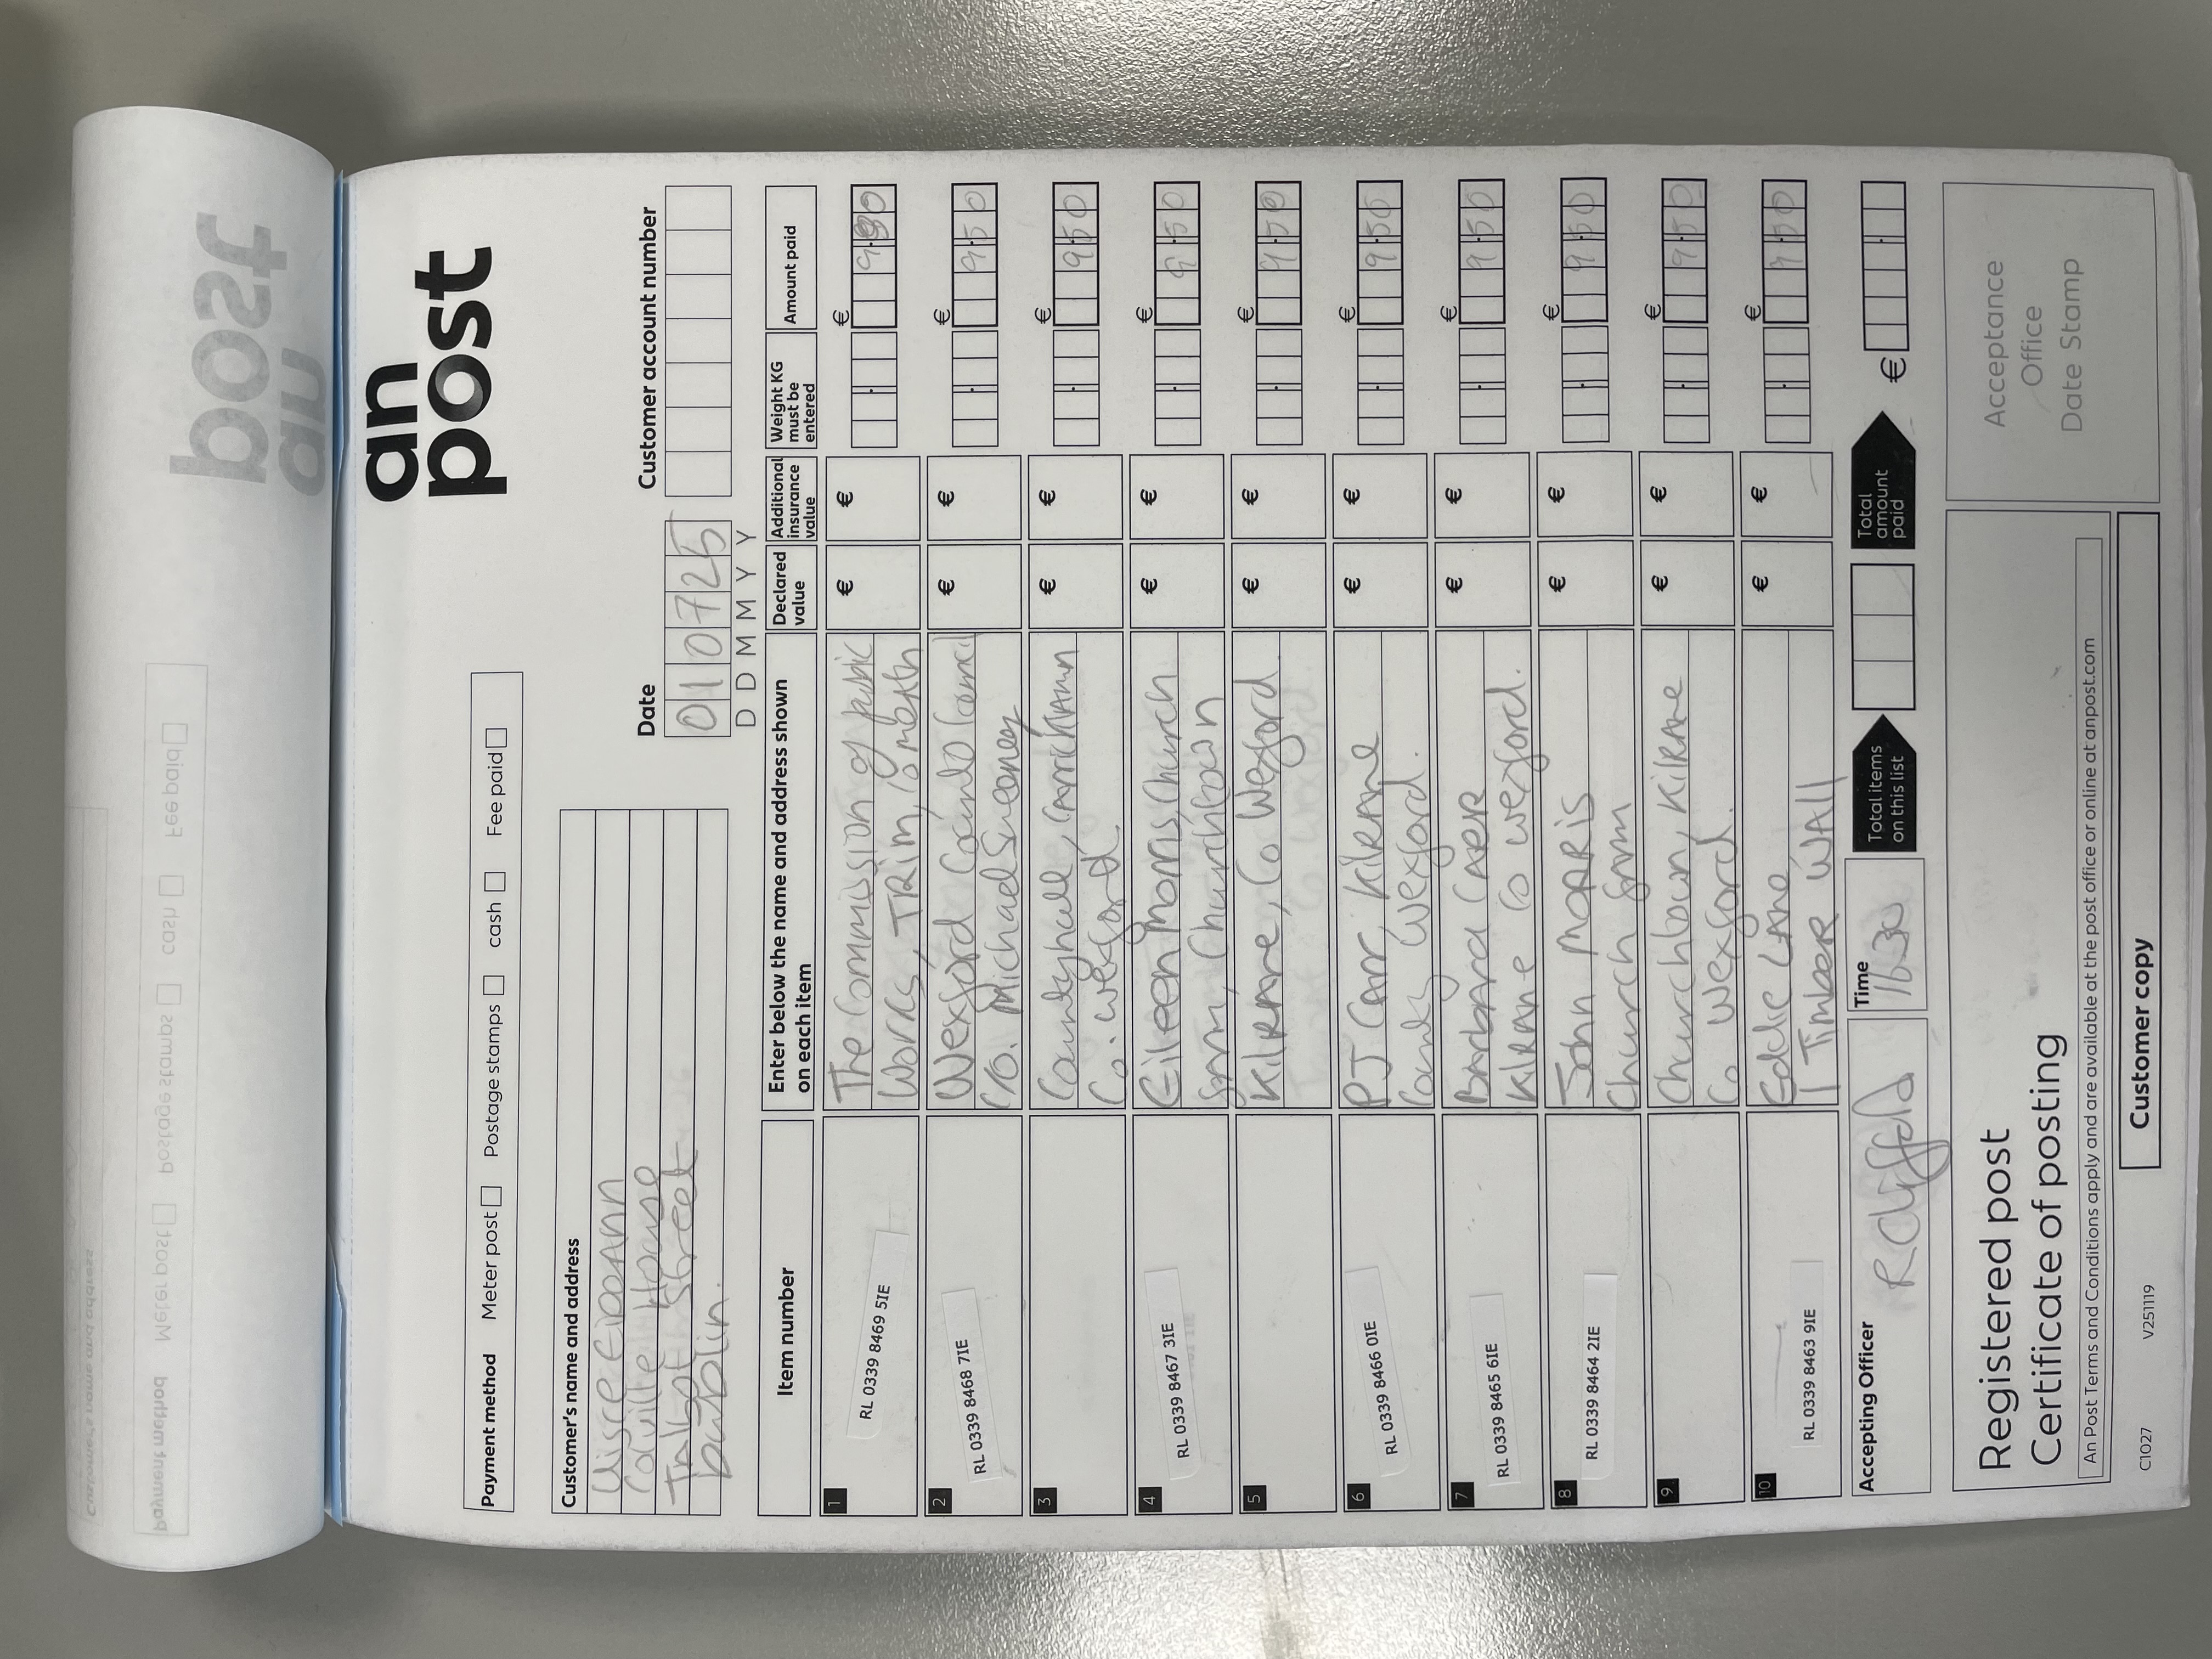 an
post
Payment method Meter post Postage stamps cash Fee paid
Customer's name and address
Uisce Eireann
Colville House
Talbot Street
Dublin.
Date
010725
D D M M Y Y
Customer account number
Item number
Enter below the name and address shown
on each item
Declared
value
Additional
insurance
value
Weight KG
must be
entered
Amount paid
1 RL 0339 8469 5IE The Commission of public € € €
Works, TRIM, Co meath
2 RL 0339 8468 7IE Wexford County Council € € € 9.50
C/O. Michael Sweeney
3 Countyhall, Carricklawn € € € 9.50
Co. Wexford
4 RL 0339 8467 3IE Eileen Morris, Church € € € 9.50
farm, Churchtown
5 KilRAne, Co Wexford € € € 9.50
6 RL 0339 8466 0IE PJ Carr, KilRAne € € € 9.50
County Wexford.
7 RL 0339 8465 6IE Barbara CARR € € € 9.50
KilRAne Co wexford.
8 RL 0339 8464 2IE John MORRIS € € € 9.50
Church farm
9 Churchtown, KilRAne € € € 9.50
Co Wexford.
10 RL 0339 8463 9IE Eddie LAne, € € € 9.50
1 Timber WAll
Accepting Officer
Time
16.30
Total items
on this list
Total
amount
paid
€
Registered post
Certificate of posting
An Post Terms and Conditions apply and are available at the post office or online at anpost.com
Acceptance
Office
Date Stamp
C1027 V251119
Customer copy